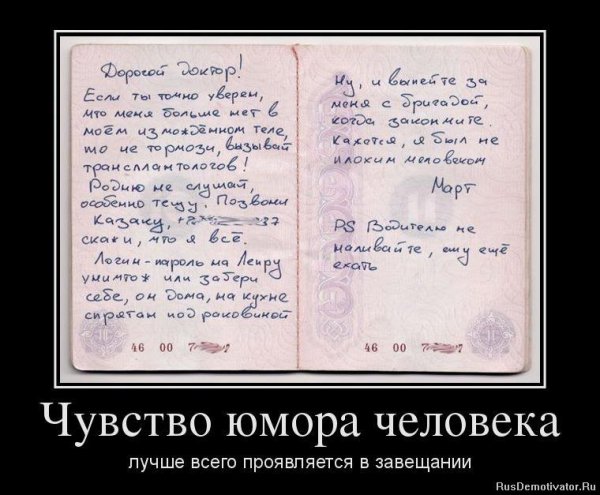 Дорогой Доктор!
Если ты точно уверен,
что меня больше нет в
моём измождённом теле,
то не тормози, вызывай
трансплантологов!
Родню не слушай,
особенно тёщу. Позвони
Казаку, +7 37
скажи, что я всё.
Логин-пароль на Лепру
уничтож или забери
себе, он дома, на кухне
спрятан под раковиной
46 00 7
Ну, и выпейте за
меня с бригадой,
когда закончите.
Кажется, я был не
плохим человеком
Март
PS Водителю не
наливайте, ему ещё
ехать
46 00 7
Чувство юмора человека
лучше всего проявляется в завещании
RusDemotivator.Ru